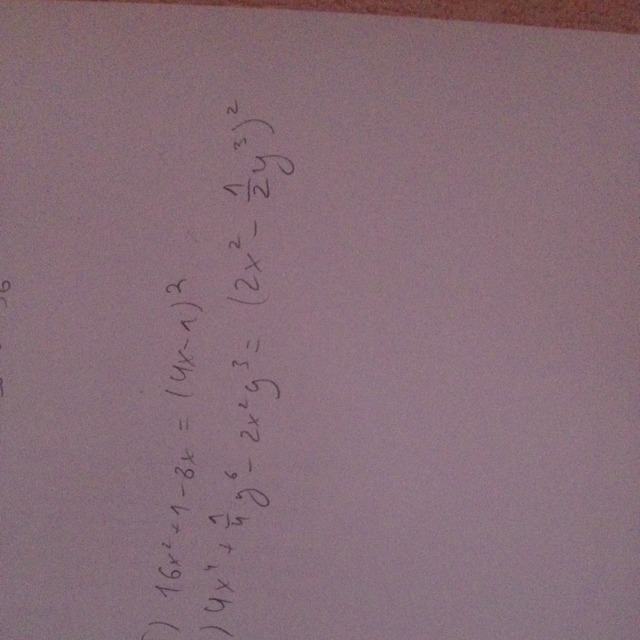 ) 16x² + 1 - 8x = (4x - 1)²
) 4x⁴ + 1/4 y⁶ - 2x²y³ = (2x² - 1/2 y³)²